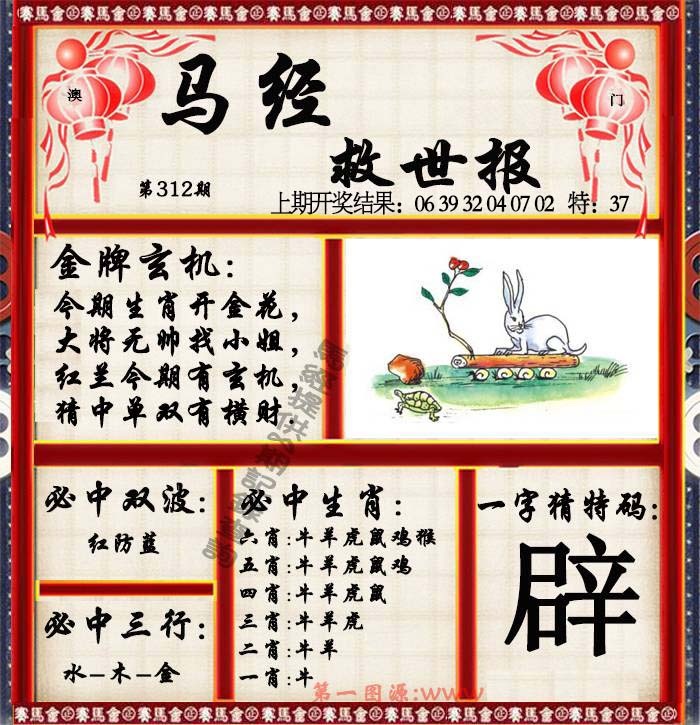 賽馬會賽馬會賽馬會賽馬會賽馬會賽馬會賽馬會
澳
门
马经
救世报
第312期
上期开奖结果：06 39 32 04 07 02 特：37
金牌玄机：
今期生肖开金花，
大将无帅找小姐，
红兰今期有玄机，
猜中单双有横财.
必中双波：
红防蓝
必中三行：
水-木-金
必中生肖：
六肖:牛羊虎鼠鸡猴
五肖:牛羊虎鼠鸡
四肖:牛羊虎鼠
三肖:牛羊虎
二肖:牛羊
一肖:牛
一字猜特码：
辟
第一图源:www